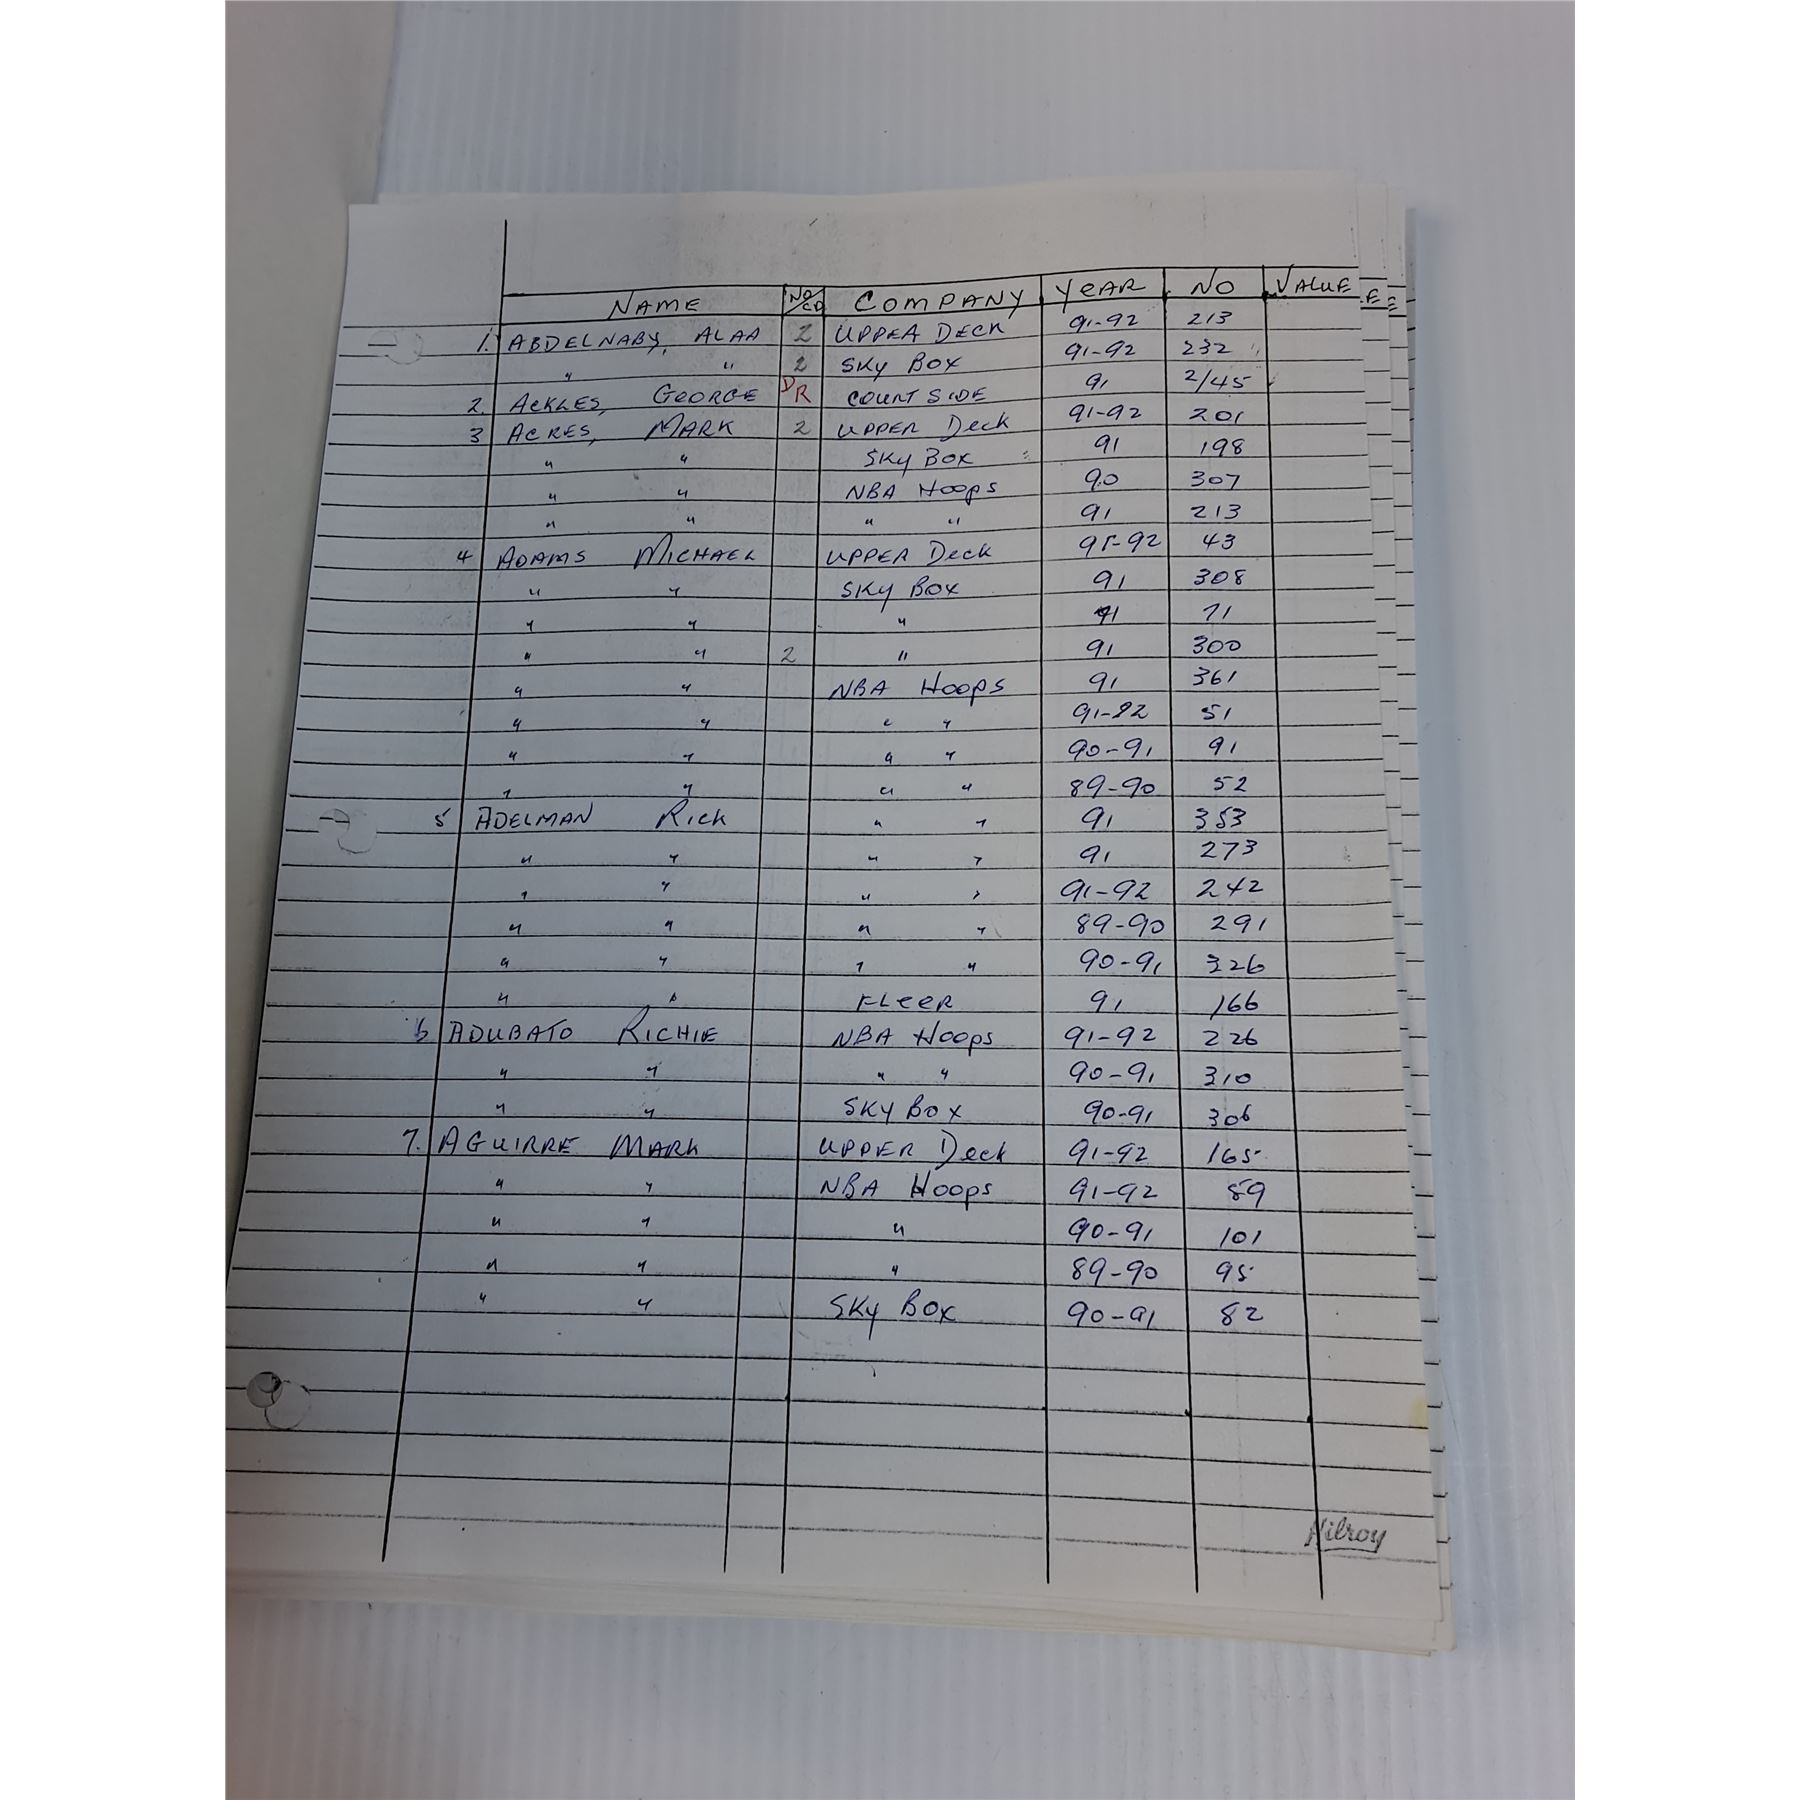 NAME NO/CD COMPANY YEAR NO VALUE
1. ABDELNABY, ALAA 2 UPPER DECK 91-92 213
" " 2 SKY BOX 91-92 232
2. ACKLES, GEORGE DR COURT SIDE 91 2/45
3 ACRES, MARK 2 UPPER Deck 91-92 201
" " SKY BOX 91 198
" " NBA Hoops 90 307
" " " " 91 213
4 ADAMS MICHAEL UPPER Deck 91-92 43
" " SKY BOX 91 308
" " " 91 71
" " 2 " 91 300
" " NBA Hoops 91 361
" " " " 91-92 51
" " " " 90-91 91
" " " " 89-90 52
5 ADELMAN RICK " " 91 353
" " " " 91 273
" " " " 91-92 242
" " " " 89-90 291
" " " " 90-91 326
" " FLEER 91 166
6 ADUBATO RICHIE NBA Hoops 91-92 226
" " " " 90-91 310
" " SKY BOX 90-91 306
7. AGUIRRE MARK UPPER Deck 91-92 165
" " NBA Hoops 91-92 89
" " " 90-91 101
" " " 89-90 95
" " SKY BOX 90-91 82
Hilroy